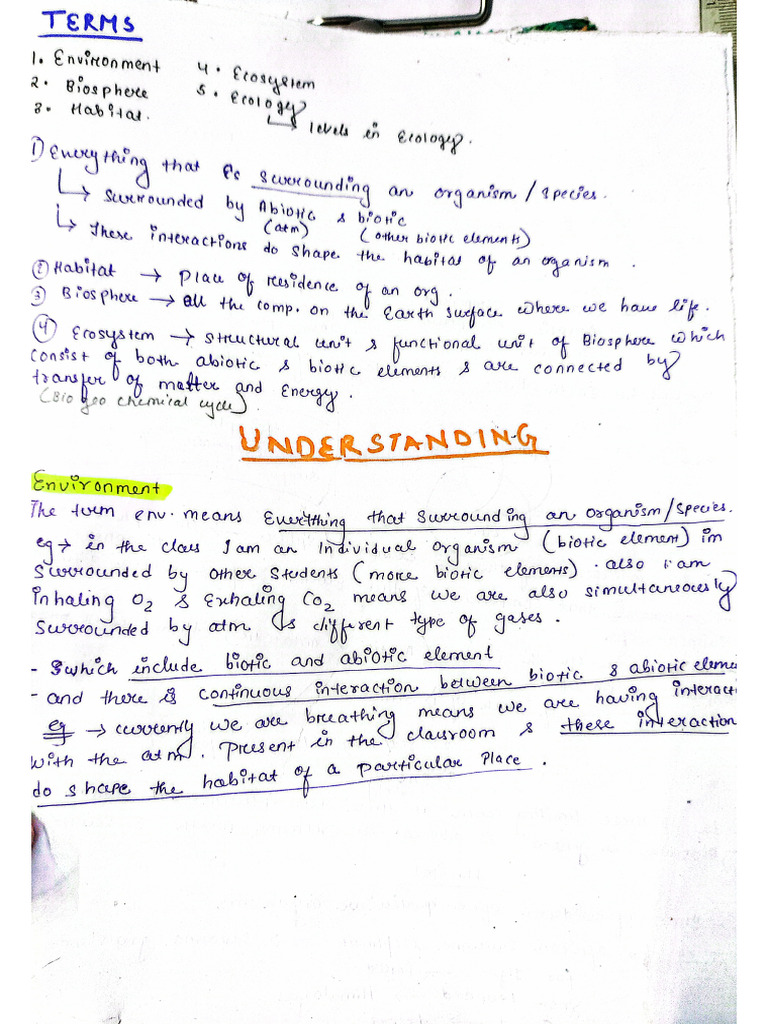 TERMS
1. Environment
2. Biosphere
3. Habitat.
4. Ecosystem
5. Ecology
↳ levels in Ecology.
1) Everything that is surrounding an organism/species.
↳ Surrounded by Abiotic & biotic
(atm) (other biotic elements)
↳ These interactions do shape the habitat of an organism.
② Habitat → Place of residence of an org.
③ Biosphere → all the comp. on the Earth surface where we have life.
④ Ecosystem → structural unit & functional unit of Biosphere which
consist of both abiotic & biotic elements & are connected by
transfer of matter and Energy.
(Bio geo chemical cycle).
UNDERSTANDING
Environment
The term env. means Everything that surrounding an organism/species.
eg → in the class I am an individual organism (biotic element) im
surrounded by other students (more biotic elements). also i am
inhaling O2 & Exhaling CO2 means we are also simultaneously
surrounded by atm & different type of gases.
- which include biotic and abiotic element
- and there is continuous interaction between biotic & abiotic eleme
eg → currently we are breathing means we are having interact
with the atm. Present in the classroom & these interaction
do shape the habitat of a particular place.